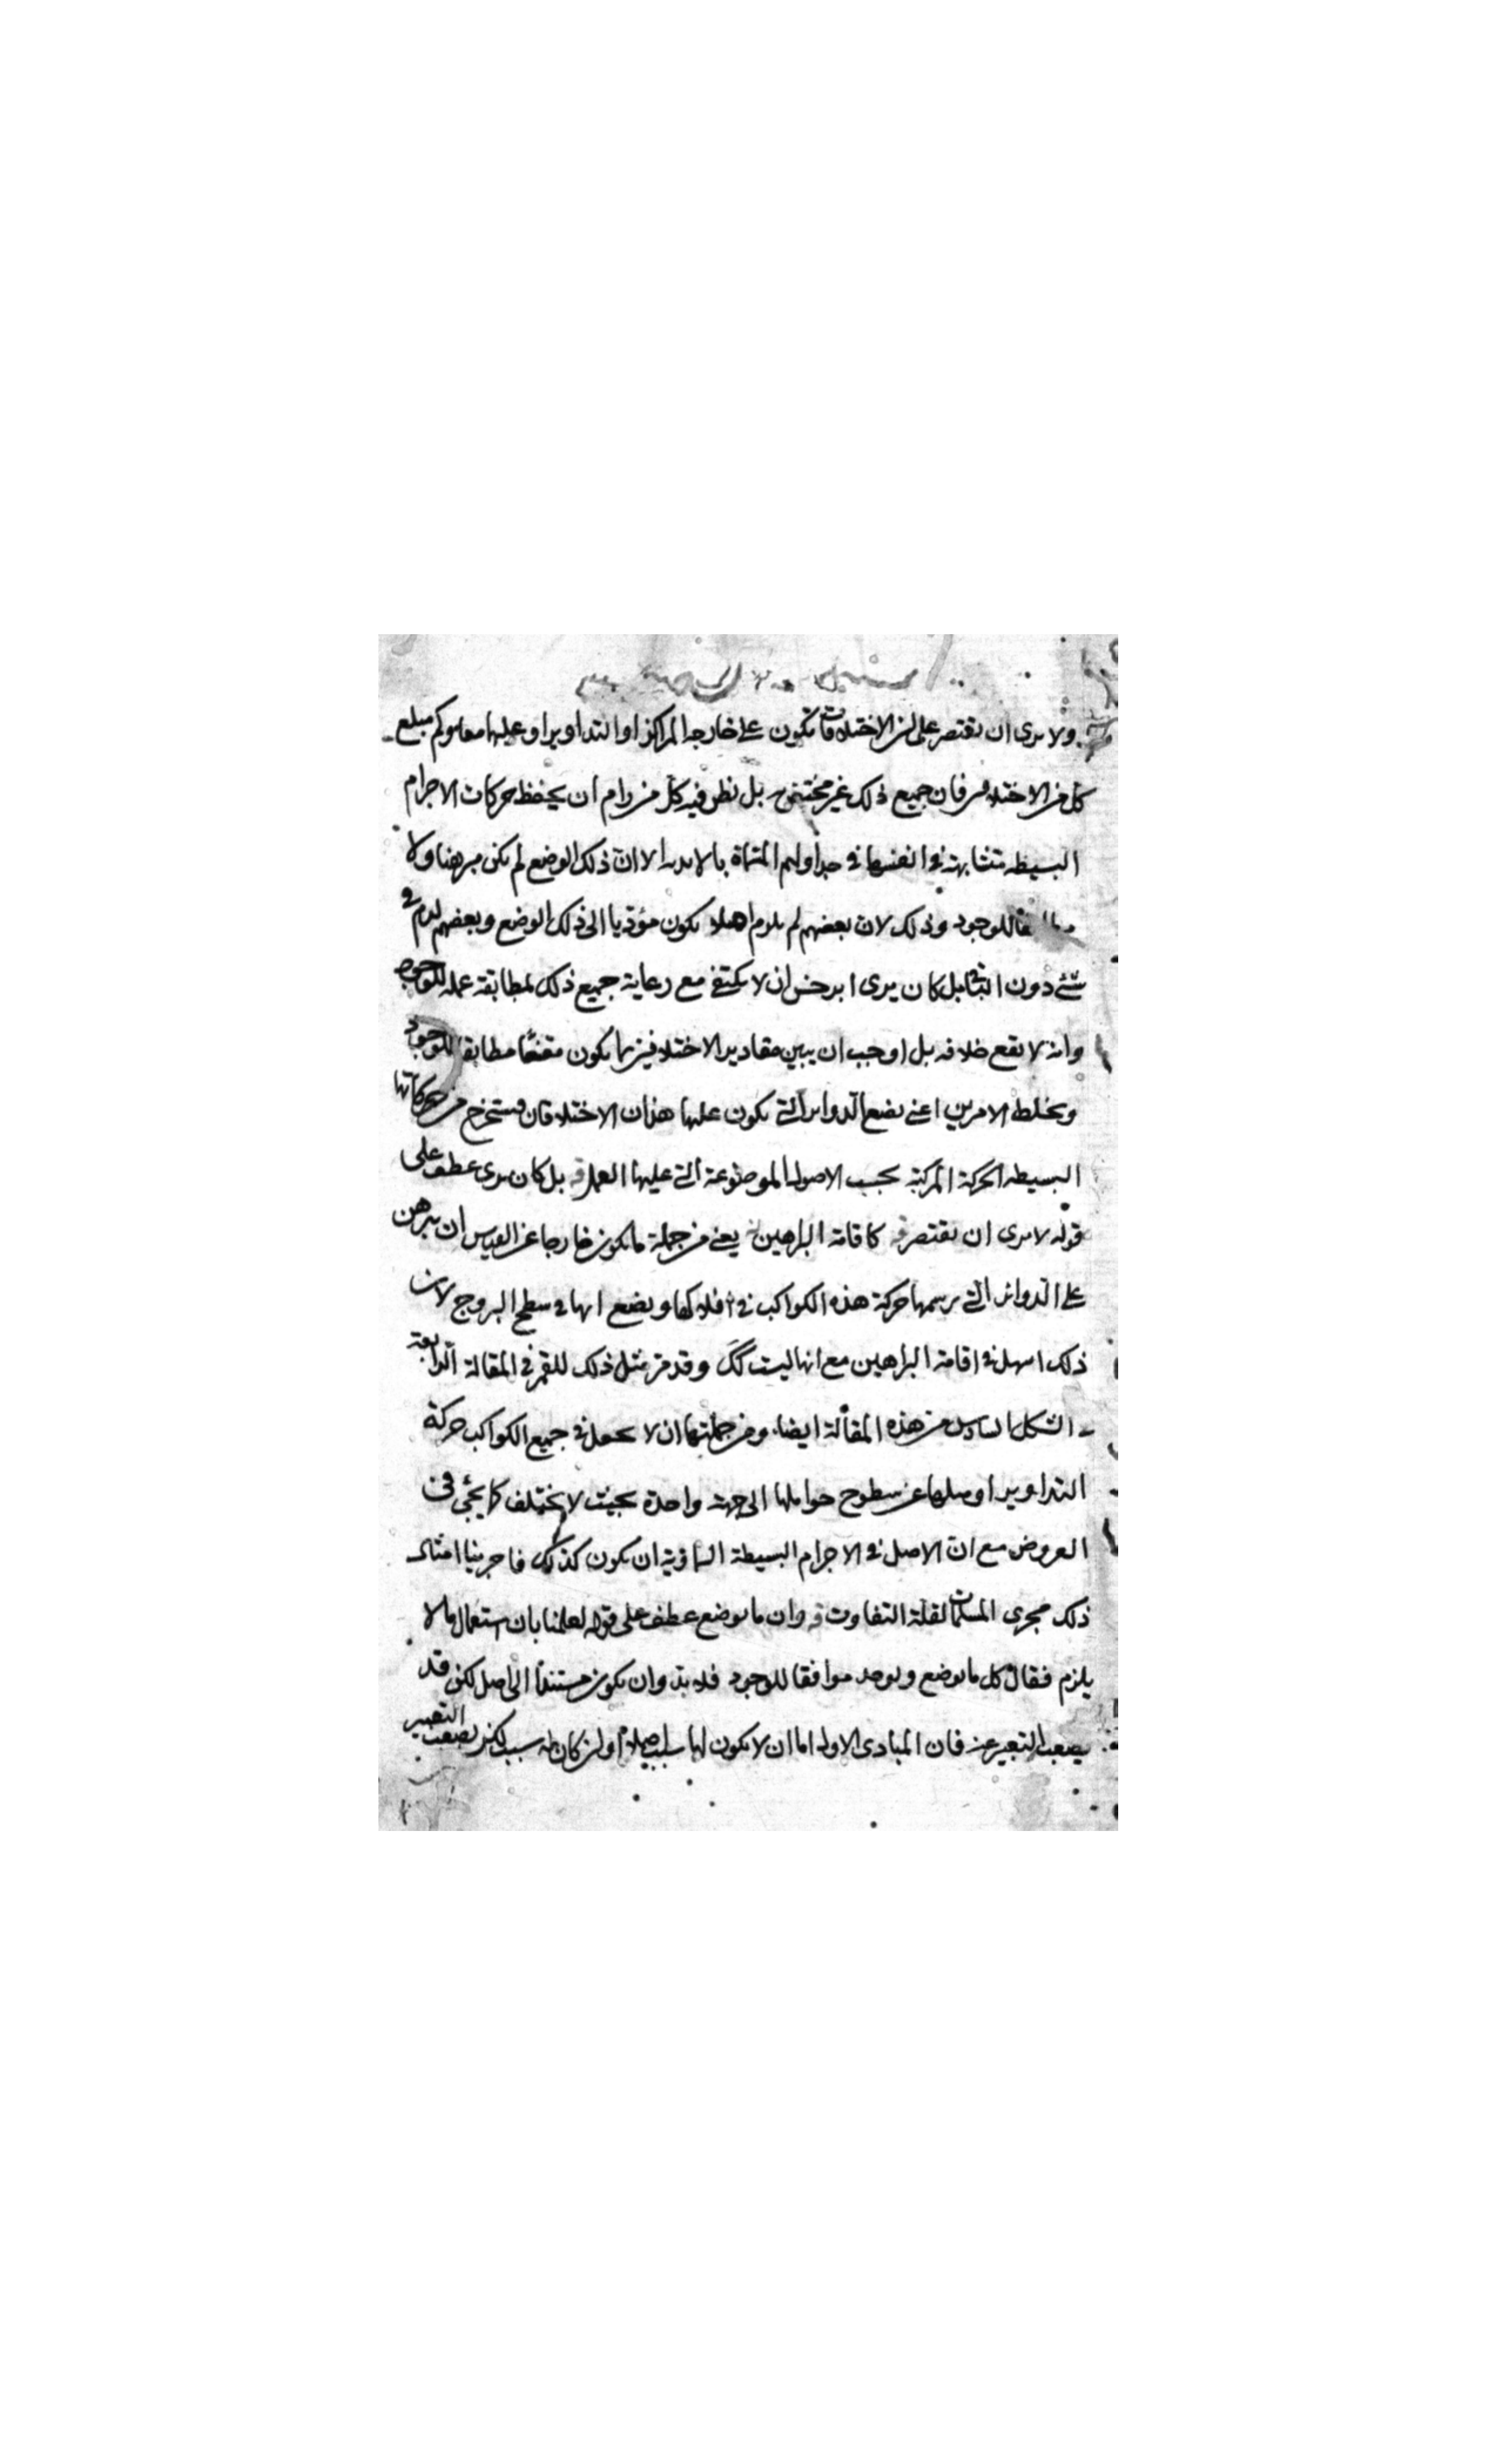 ولا يرى ان يقتصر على ان الاختلافات تكون على خارجه المراكز او التداوير او عليها معا وكم مبلغ
كل من الاختلافين فان جميع ذلك غير مختص به بل نظر فيه كل من رام ان يحفظ حركات الاجرام
البسيطه متشابهة في انفسها في جداولهم المسماة بالابدية الا ان ذلك الوضع لم يكن مبرهنا ولا
للوجود وذلك لان بعضهم لم يلزم اصلا يكون مؤديا الى ذلك الوضع وبعضهم لزم في
شئ دون الباقى بل كان يرى ابرخس ان لا يكتفى مع رعاية جميع ذلك لمطابقة عمله للوجود
وانه لا يقع خلافه بل اوجب ان يبين مقادير الاختلافين بما يكون مقنعا مطابقا للوجود
ويخلط الامرين اعنى يضع الدوائر التى يكون عليها هذان الاختلافان فيستخرج من حركاتها
البسيطه الحركة المركبة بحسب الاصول الموضوعة التى عليها العمل قه بل كان يرى عطف على
قوله لا يرى ان يقتصر قه كاقامة البراهين يعنى من جملة ما يكون خارجا عن القياس ان يبرهن
على الدوائر التى يرسمها حركة هذه الكواكب في افلاكها ويضع انها في سطح البروج لان
ذلك اسهل في اقامة البراهين مع انها ليست كك وقد مر مثل ذلك للقمر في المقالة الرابعة
في الشكل السادس من هذه المقالة ايضا ومن جملتها ان لا يجعل في جميع الكواكب حركة
التداوير او ميلها عن سطوح حواملها الى جهة واحدة بحيث لا يختلف كما يجئ في
العروض مع ان الاصل في الاجرام البسيطة السماوية ان يكون كذلك فاجرينا امثال
ذلك مجرى المسلمات لقلة التفاوت قه وان ما يوضع عطف على قوله لعلمنا بان استعمال ما لا
يلزم فقال كل ما يوضع ويوجد موافقا للوجود فلا بد وان يكون مستندا الى اصل لكن قد
يصعب التعبير عنه فان المبادى الاول اما ان لا يكون لها سبب اصلا او ان كان له سبب لكن يصعب التعبير